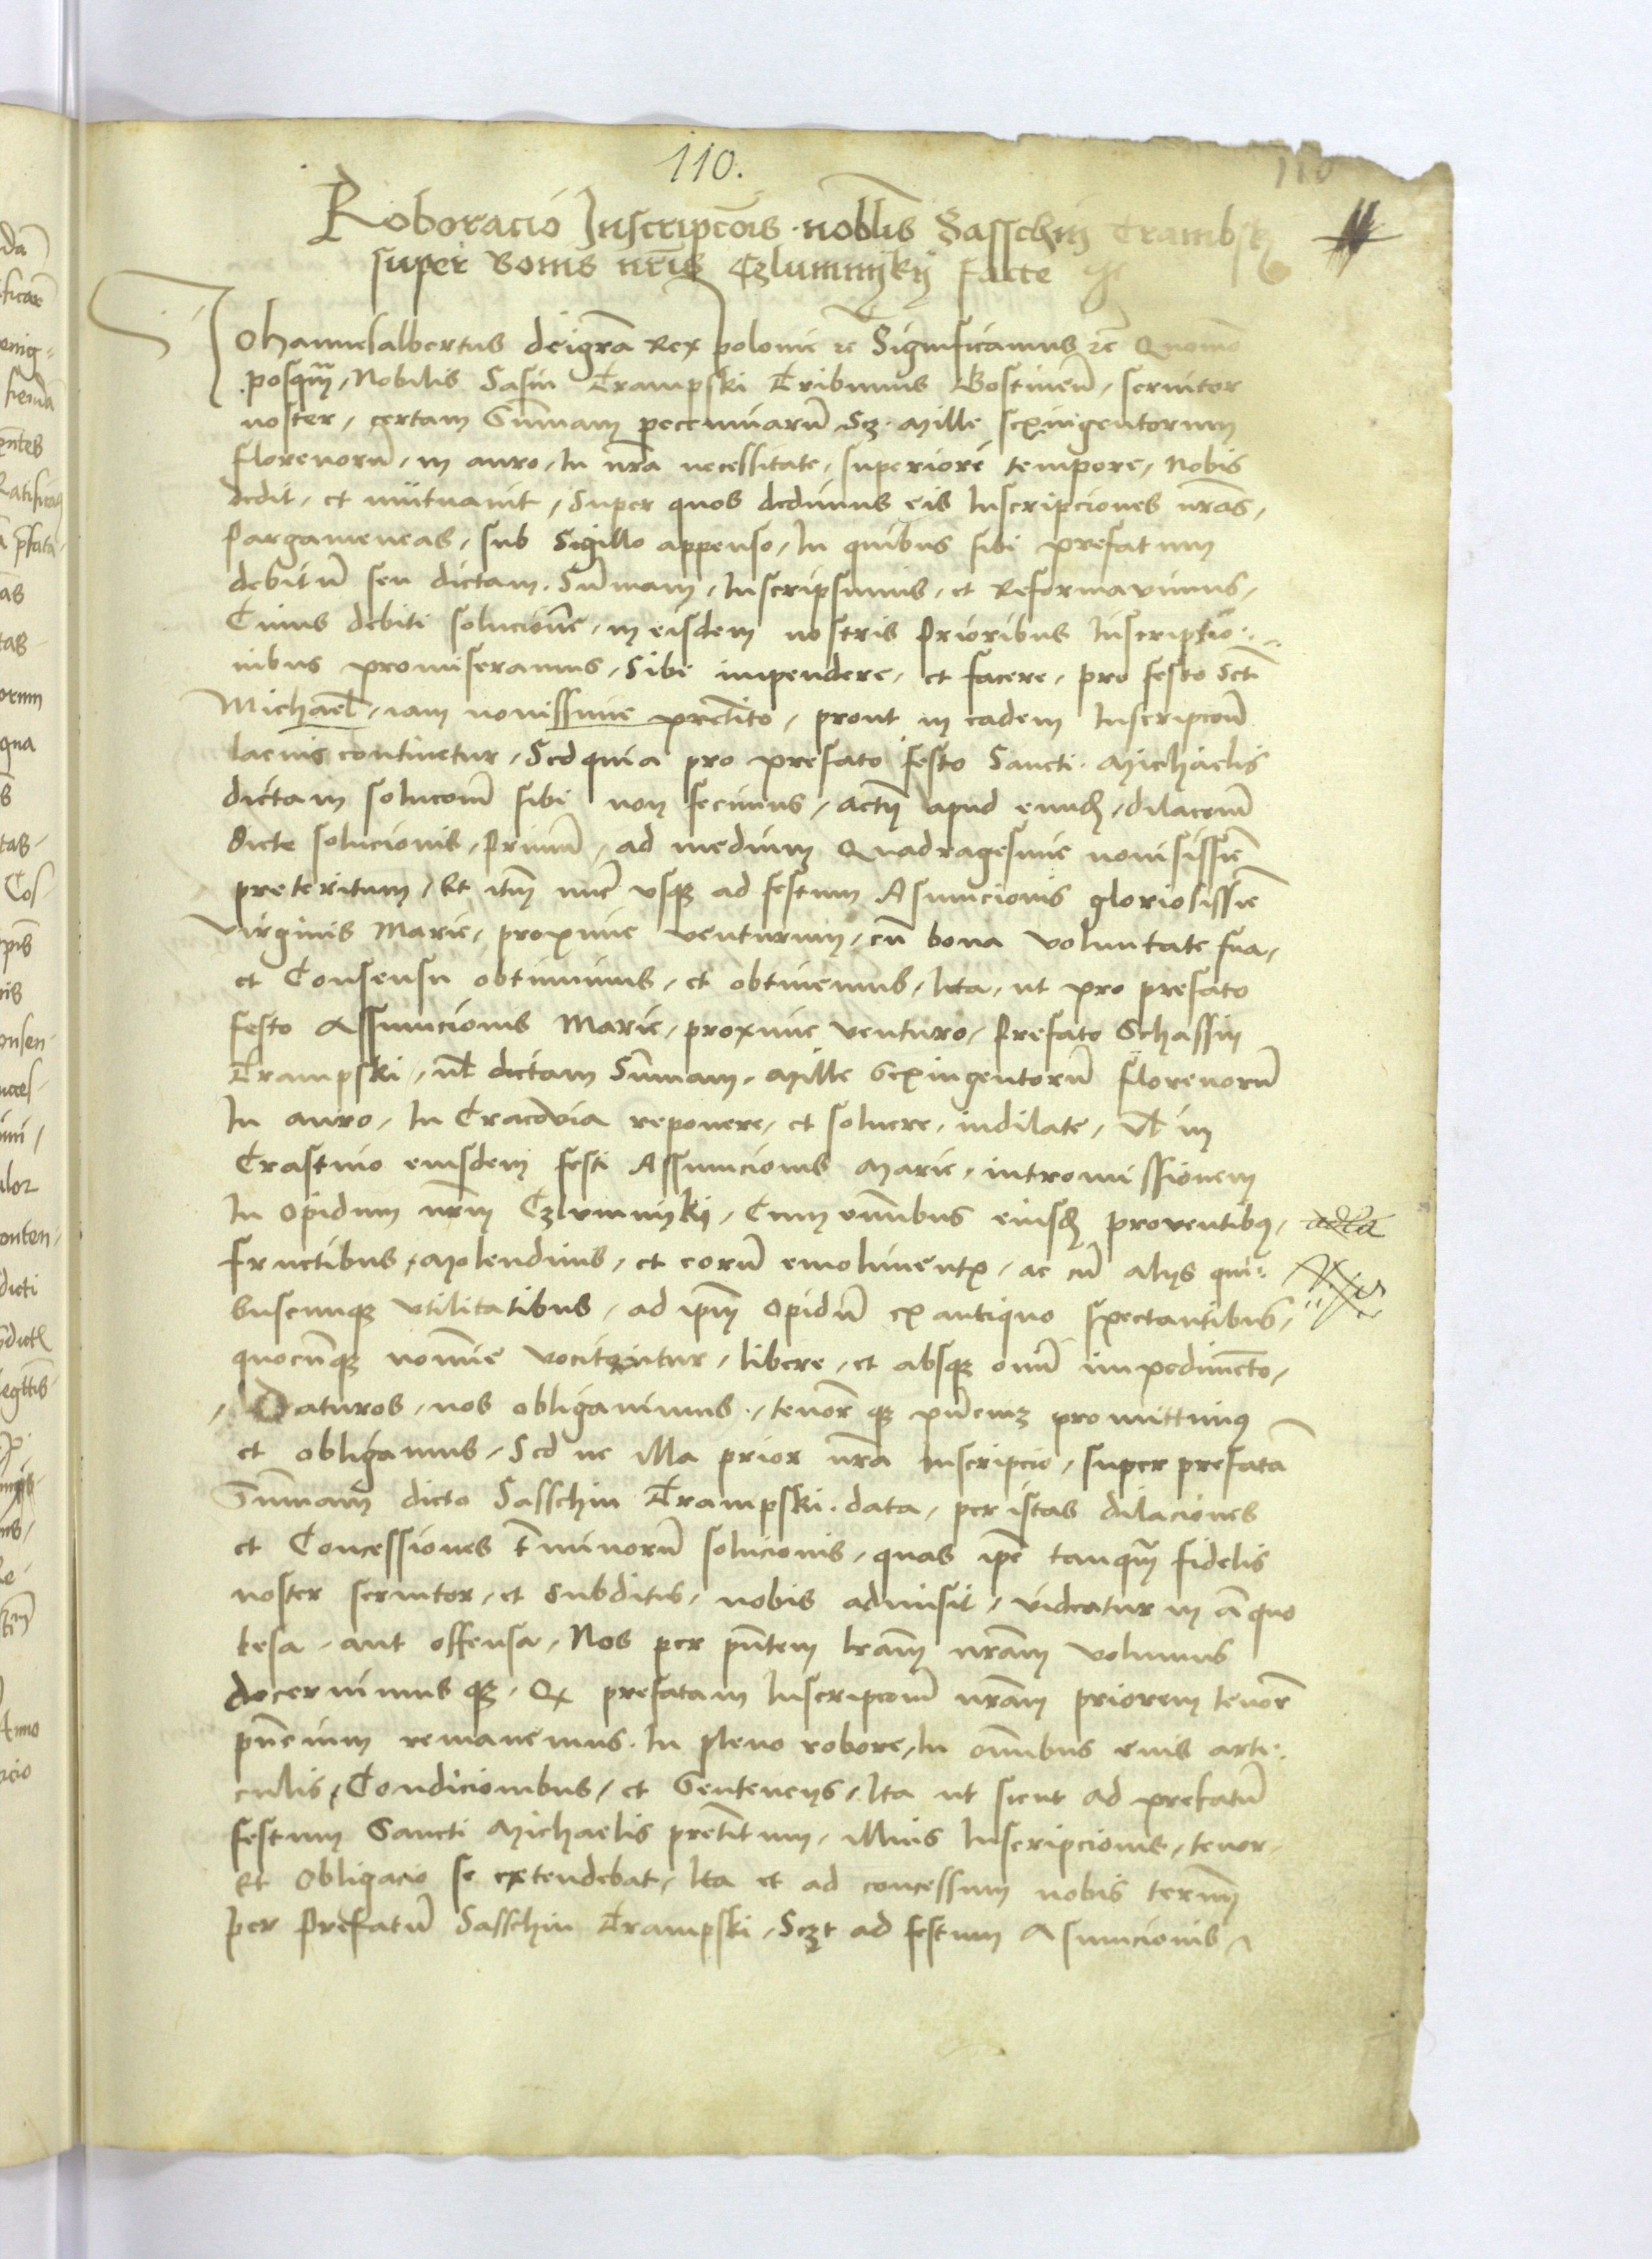 110.
110
Roboracio Inscripcõis nobłis Sasschin Trambsky
super Bonis nr̃is Czlumnyky facte
Johannes albertus deigr̃a Rex polonie ꝛc̃ Significamus ꝛc̃ Quomo
posqm̃, Nobilis Sasin Trampski Tribunus Gostinen̄, servitor
noster, certam Sum̄am peccuniarū Scz Mille sexingentorum
florenorū, in auro, In nr̃a necessitate, superiore tempore, Nobis
dedit, et mutuavit, Super quos dedimus eis Inscripciones nr̃as,
Pargameneas, sub Sigillo appenso, In quibus sibi prefatum
debitū seu dictam Sum̄am, Inscripsimus, et Reformavimus,
Cuius debiti solucionē, in eisdem nostris Prioribus Inscripcio-
nibus promiseramus, Sibi inpendere, et facere, pro festo Scti
Michael, iam novissime pretito, prout in eadem Inscripcōn̄
lacius continetur, Sed quia pro prefato festo Sancti Michaelis
dictam solucōm̄ sibi non fecimus, apud eund, dilacōm̄
dicte solucionis, Primū, ad medium Quadragesime novississīē
preteritum, Et itm̄ nūc usqȝ ad festum Asumcionis gloriosissīē
virginis Marie, proxime venturum, cū bona voluntate sua,
et Consensu obtinuimus, et obtinemus, Ita, ut pro prefato
festo Assumcionis Marie, proxime venturo, Prefato Schassin
Trampski, vł dictam Sum̄am, Mille Sexingentorū florenorū
In auro, In Cracovia reponere, et soluere, indilate, Vł in
Crastino eiusdem festi Assumcionis Marie, intromissionem
In Opidum nr̃m Czlumnyky, Cum om̄ibus eiusd proventibȝ,
fructibus, Molendinis, et eorū emolimentꝭ, ac cū alijs qui-
buscunqȝ utilitatibus, ad ip̄m Opidū ex antiquo spectantibus,
quocūqȝ nomine vocitantur, libere, et absqȝ om̄i impedimēto,
Daturos, nos obligavimus, tenorē qȝ pn̄ciuȝ promittimꝰ
et obligamus, Sed ne illa prior nr̃a inscripcio, super prefatā
Sum̄am dicto Sasschin Trampski data, per istas dilaciones
et Concessiones t̄minorū solucionis, quas ip̄e tanqm̃ fidelis
noster servitor, et Subditus, nobis admisit, videatur in aliquo
lesa, aut offensa, Nos per pn̄tem lr̃am nr̃am volumus
decernimus qȝ, Qꝫ prefatam Inscripcōm̄ nr̃am priorem tenorē
pn̄cium remanemus In pleno robore, In om̄ibus eius arti-
culis, Condicionibus, et Sentencijs, Ita ut sicut ad prefatū
festum Sancti Michaelis pretitum, illius Inscripcionis, tenor
Et Obligacio se extendebat, Ita et ad concessum nobis termī
per Prefatū Sasschin Trampski, Sczt ad festum Asumcionis